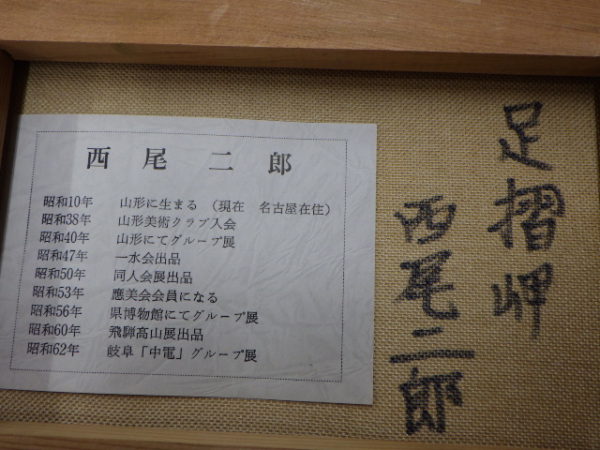 西尾二郎
昭和10年 山形に生まる (現在 名古屋在住)
昭和38年 山形美術クラブ入会
昭和40年 山形にてグループ展
昭和47年 一水会出品
昭和50年 同人会展出品
昭和53年 應美会会員になる
昭和56年 県博物館にてグループ展
昭和60年 飛騨高山展出品
昭和62年 岐阜「中電」グループ展
足摺岬
西尾二郎